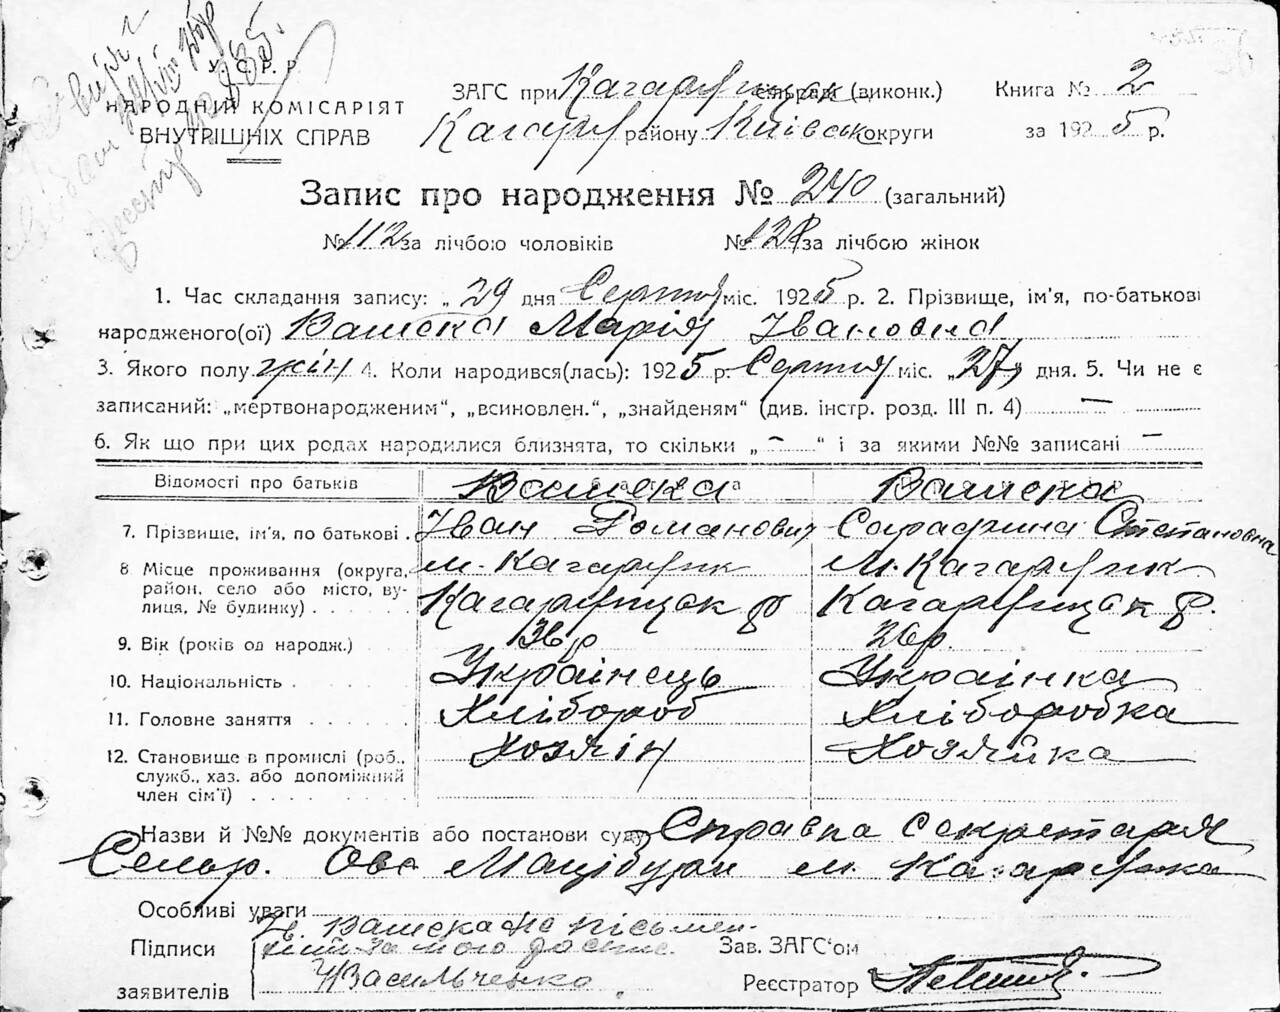 У. С. Р. Р.
НАРОДНИЙ КОМІСАРІЯТ
ВНУТРІШНІХ СПРАВ
ЗАГС при Кагарлицьк сільраді (виконк.) Книга № 2
Кагарл району Київськ округи за 1925 р.
Запис про народження № 240 (загальний)
№ 112 за лічбою чоловіків № 128 за лічбою жінок
1. Час складання запису: „ 29 дня Серпня міс. 1925 р. 2. Прізвище, ім'я, по-батькові
народженого(ої) Вашека Марія Івановна
3. Якого полу жін 4. Коли народився(лась): 1925 р. Серпня міс. „27„ дня. 5. Чи не є
записаний: „мертвонародженим“, „всиновлен.“, „знайденям“ (див. інстр. розд. III п. 4) —
6. Як що при цих родах народилися близнята, то скільки „ – “ і за якими №№ записані —
Відомості про батьків Вашека Вашека
7. Прізвище, ім'я, по батькові . Іван Романович Серафина Степановна
8 Місце проживання (округа, м. Кагарлик м. Кагарлик
район, село або місто, ву-
лиця, № будинку) . . . . . Кагарлицьк р Кагарлицьк р.
9. Вік (років од народж.) 36 р 26 р.
10. Національність . Українець Українка
11. Головне заняття . . . . . Хлібороб Хліборобка
12. Становище в промислі (роб., Хозяїн Хозяйка
служб., хаз. або допоміжний
член сім'ї) . . . . . . . .
Назви й №№ документів або постанови суду Справка секретаря
Сельр. м. Кагарлика
Особливі уваги
Підписи Ів. Вашека не письмен-
Зав. ЗАГС'ом
заявителів Васильченко
Реєстратор